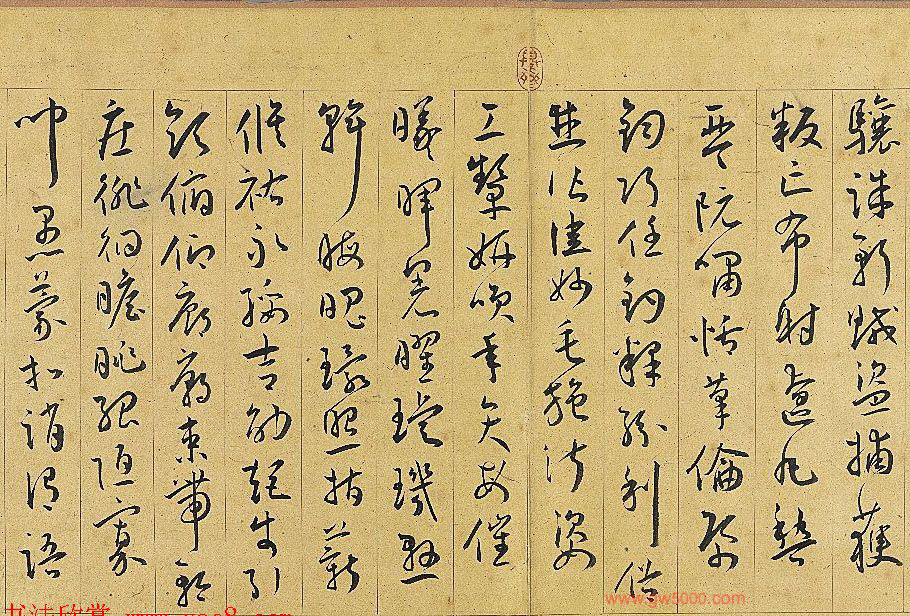 驤誅斬賊盜捕獲
叛亡布射遼丸嵇
琴阮嘯恬筆倫紙
鈞巧任釣釋紛利俗
並皆佳妙毛施淑姿
工顰妍笑年矢每催
曦暉晃曜璇璣懸
斡晦魄環照指薪
脩祜永綏吉劭矩步引
領俯仰廊廟束帶矜
莊徘徊瞻眺孤陋寡
聞愚蒙等誚謂語
www.gw5000.com
书法欣赏